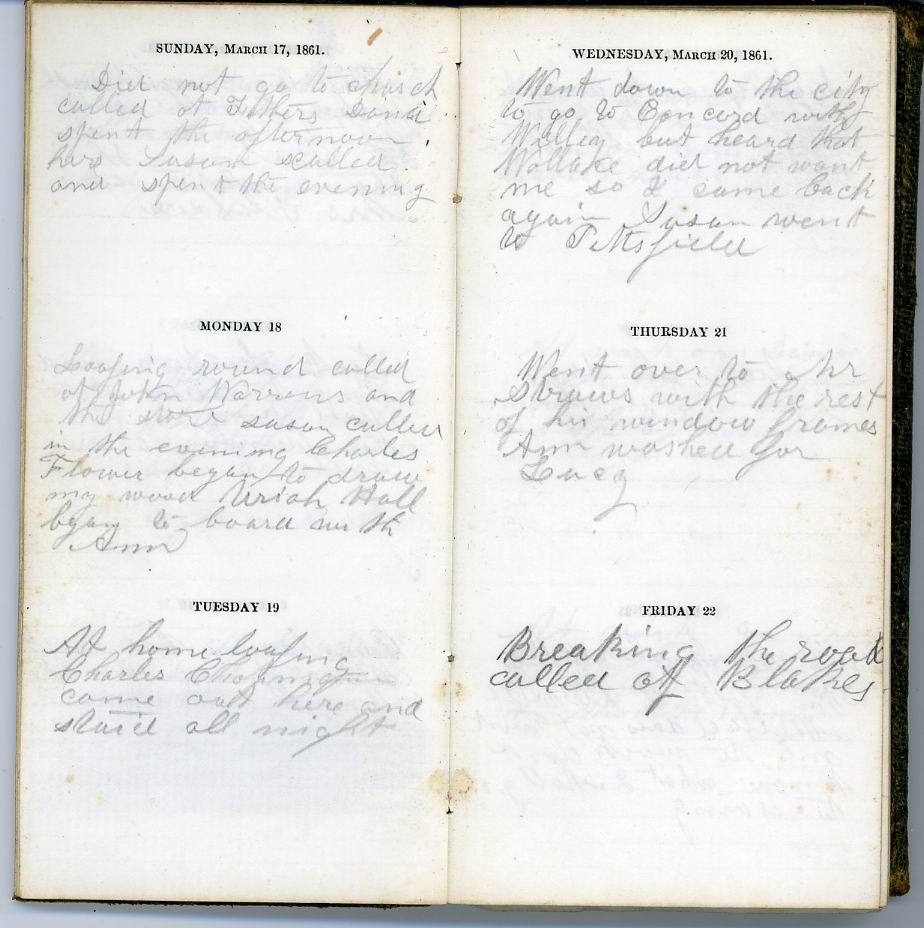 SUNDAY, MARCH 17, 1861.
Did not go to church
called at Fathers
spent the afternoon
hare Susan called
and spent the evening
MONDAY 18
Loafing round called
at John Warrens and
the store susan called
in the evening Charles
Flower began to draw
my wood Uriah Hall
began to board with
Ann
TUESDAY 19
At home loafing
Charles
came out here and
staid all night
WEDNESDAY, MARCH 20, 1861.
Went down to the city
to go to Concord with
Willey but heard that
Wallake did not want
me so I came back
again Susan went
to Pittsfield
THURSDAY 21
Went over to Mr
Straws with the rest
of his window frames
Ann washed for
Lucy
FRIDAY 22
Breaking the road
called at Blakes